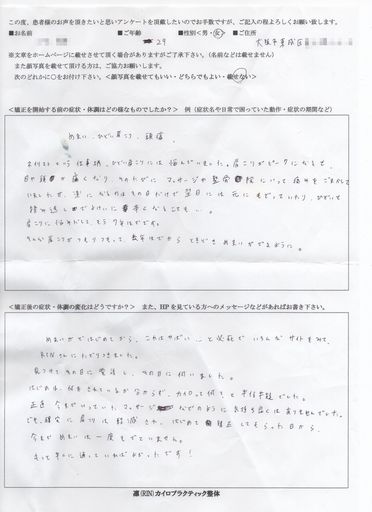 この度、患者様のお声を頂きたいと思いアンケートを頂戴したいのでお手数ですが、ご記入の程よろしくお願い致します。
■お名前 ■ご年齢 29 ■性別＜男・女＞ ■ご住所 大阪市東成区
※文章をホームページに載せさせて頂く場合がありますがご了承下さい。（名前などは載せません）
また顔写真を載せて頂ける方は、ご協力お願いします。
次のどれかに○をお付け下さい。＜顔写真を載せてもいい・どちらでもよい・載せない＞
＜矯正を開始する前の症状・体調はどの様なものでしたか？＞ 例（症状名や日常で困っていた動作・症状の期間など）
めまい、ひどい肩こり、頭痛。
仕事柄、ひどい肩こりには悩んでいました。肩こりがピークになると、
目や頭が痛くなり、そのたびに マッサージや整骨院にいって痛みをごまかして
いましたが、楽になるのはその日だけで翌日には元にもどっていたり、ひどいと
もみ返しでよけいに辛くなることも…。
肩こりに悩みだして、もう7年ほどです。
そんな肩こりがつもりつもって、数年ほどから ときどき めまいがでるように。
＜矯正後の症状・体調の変化はどうですか？＞ また、HPを見ている方へのメッセージなどがあればお書き下さい。
めまいがではじめてから、これはやばい…と必死で いろんなサイトをみて、
RINさんにたどりつきました。
見つけてその日に電話し、その日に伺いました。
はじめは、何をされているか分からず、カイロって何？と半信半疑でした。
正直 今までいっていた、マッサージなどのように気持ち良くはありませんでした。
でも、確実に肩こりは軽減され、はじめて矯正してもらった日から、
今まで めまいは一度もでていません。
もっと早くに通っていればよかったです！
凛(RIN)カイロプラクティック整体